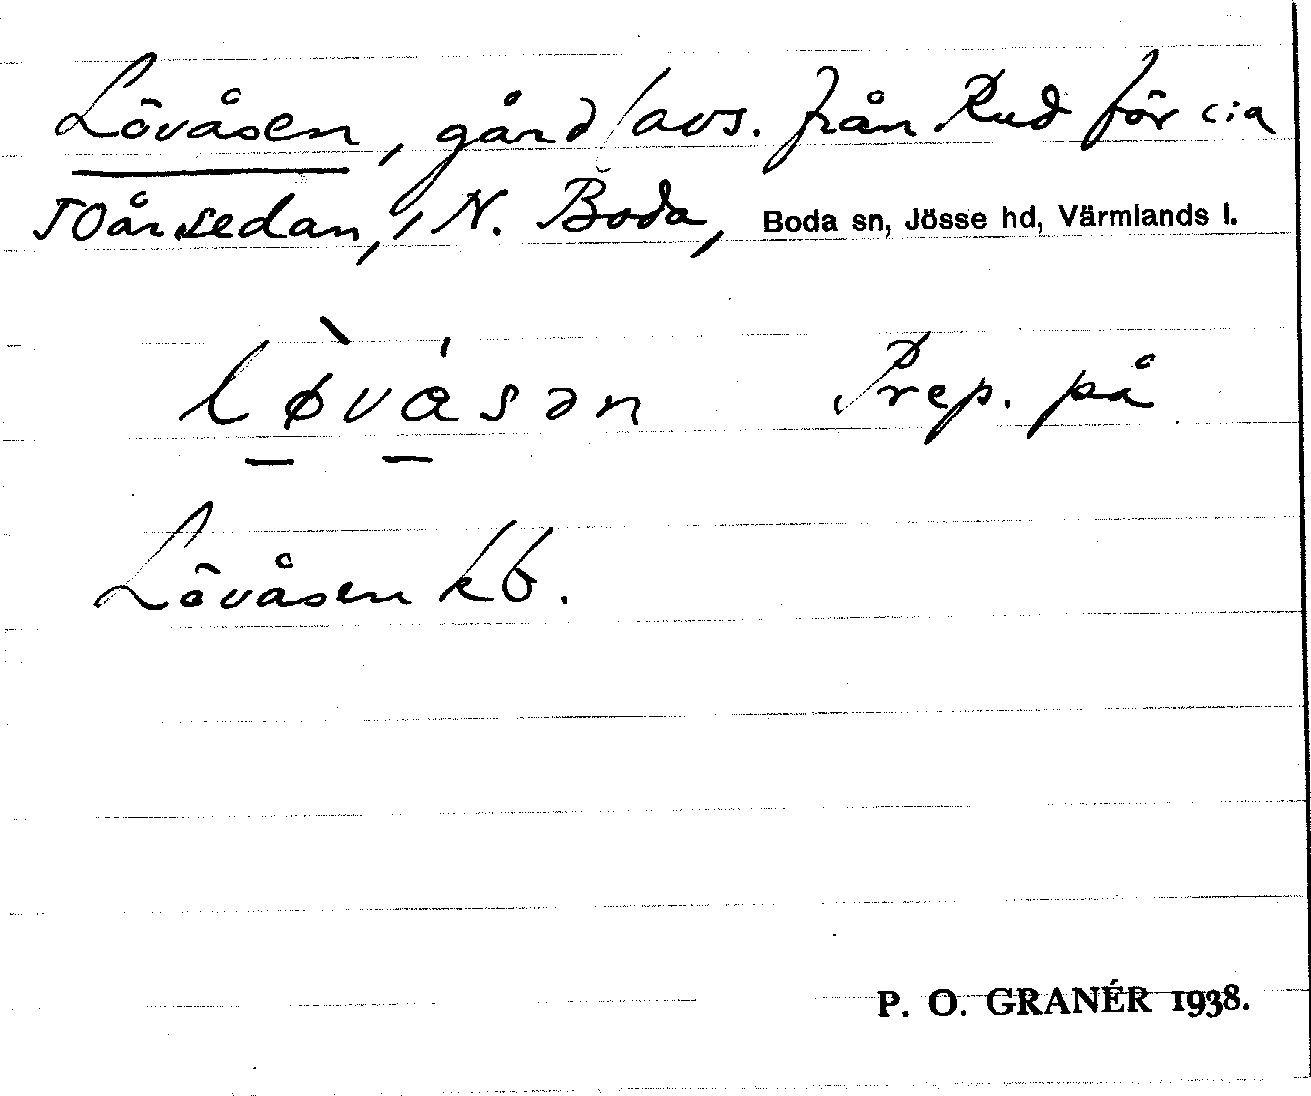 Lövåsen, gård/avs. från Rud för c:a
50 år sedan,/ N. Boda, Boda sn, Jösse hd, Värmlands l.
lø̀vásən Prep. på
Lövåsen kb.
P. O. GRANÉR 1938.